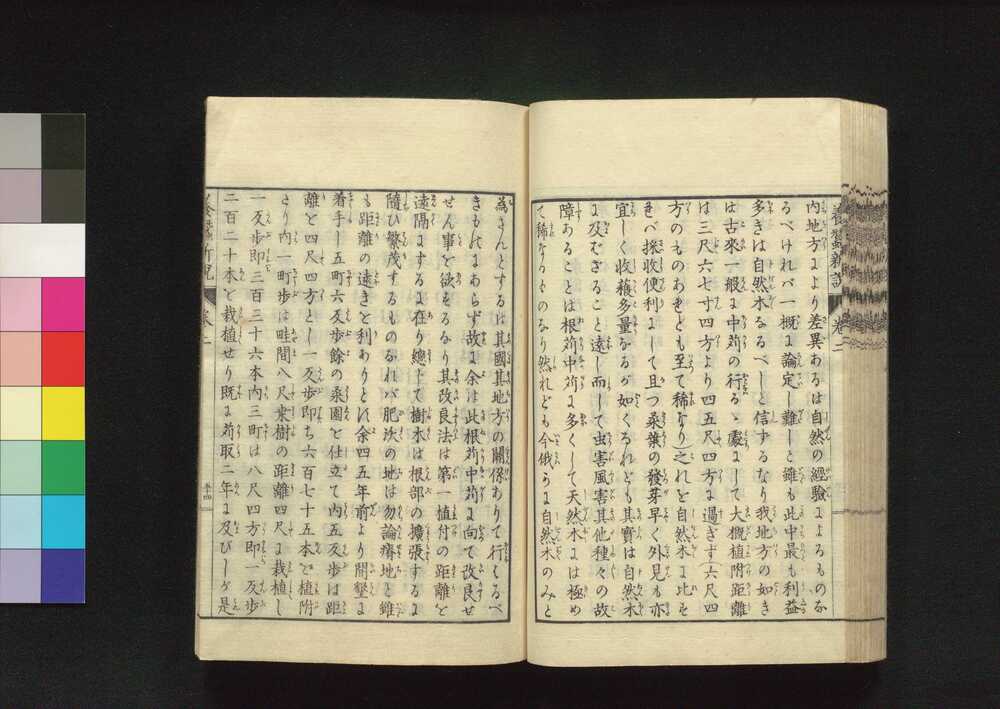 内地方により差異あるは自然の經驗によるものな
るべけれバ一概に論定し難しと雖も此中最も利益
多きは自然木なるべしと信ずるなり我地方の如き
は古來一般に中苅の行るゝ處にして大概植附距離
は三尺六七寸四方より四五尺四方に過ぎず(六尺四
方のものあれども至て稀なり)之れを自然木に比す
れバ採收便利にして且つ桑葉の發芽早く外見も亦
宜しく收穫多量なるが如くなれども其實は自然木
に及ばざること遠し而して虫害風害其他種々の故
障あることは根苅中苅に多くして天然木には極め
て稀なるものなり然れども今俄かに自然木のみと
為さんとするは其國其地方の關係ありて行はるべ
きものにあらず故に余は此根苅中苅に向て改良せ
せん事を欲するなり其改良法は第一植付の距離を
遠隔にするに在り總じて樹木は根部の擴張するに
隨ひ繁茂するものなれバ肥沃の地は勿論瘠地と雖
も距離の遠きを利ありとす余四五年前より開墾に
着手し五町六反歩餘の桑園を仕立て内五反歩は距
離を四尺四方とし一反歩即ち六百七十五本を植附
たり内一町歩は畦間八尺桑樹の距離四尺に栽植し
一反歩即三百三十六本内三町は八尺四方即一反歩
二百二十本を栽植せり既に苅取二年に及びしが是
養蠶新説
卷二